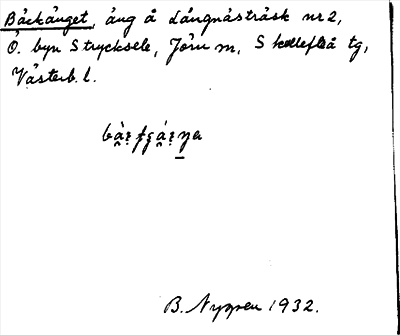 Bäckänget, äng å Långnästräsk nr 2,
Ö. byn Strycksele, Jörn sn, Skellefteå tg,
Västerb. l.
B. Nygren 1932.